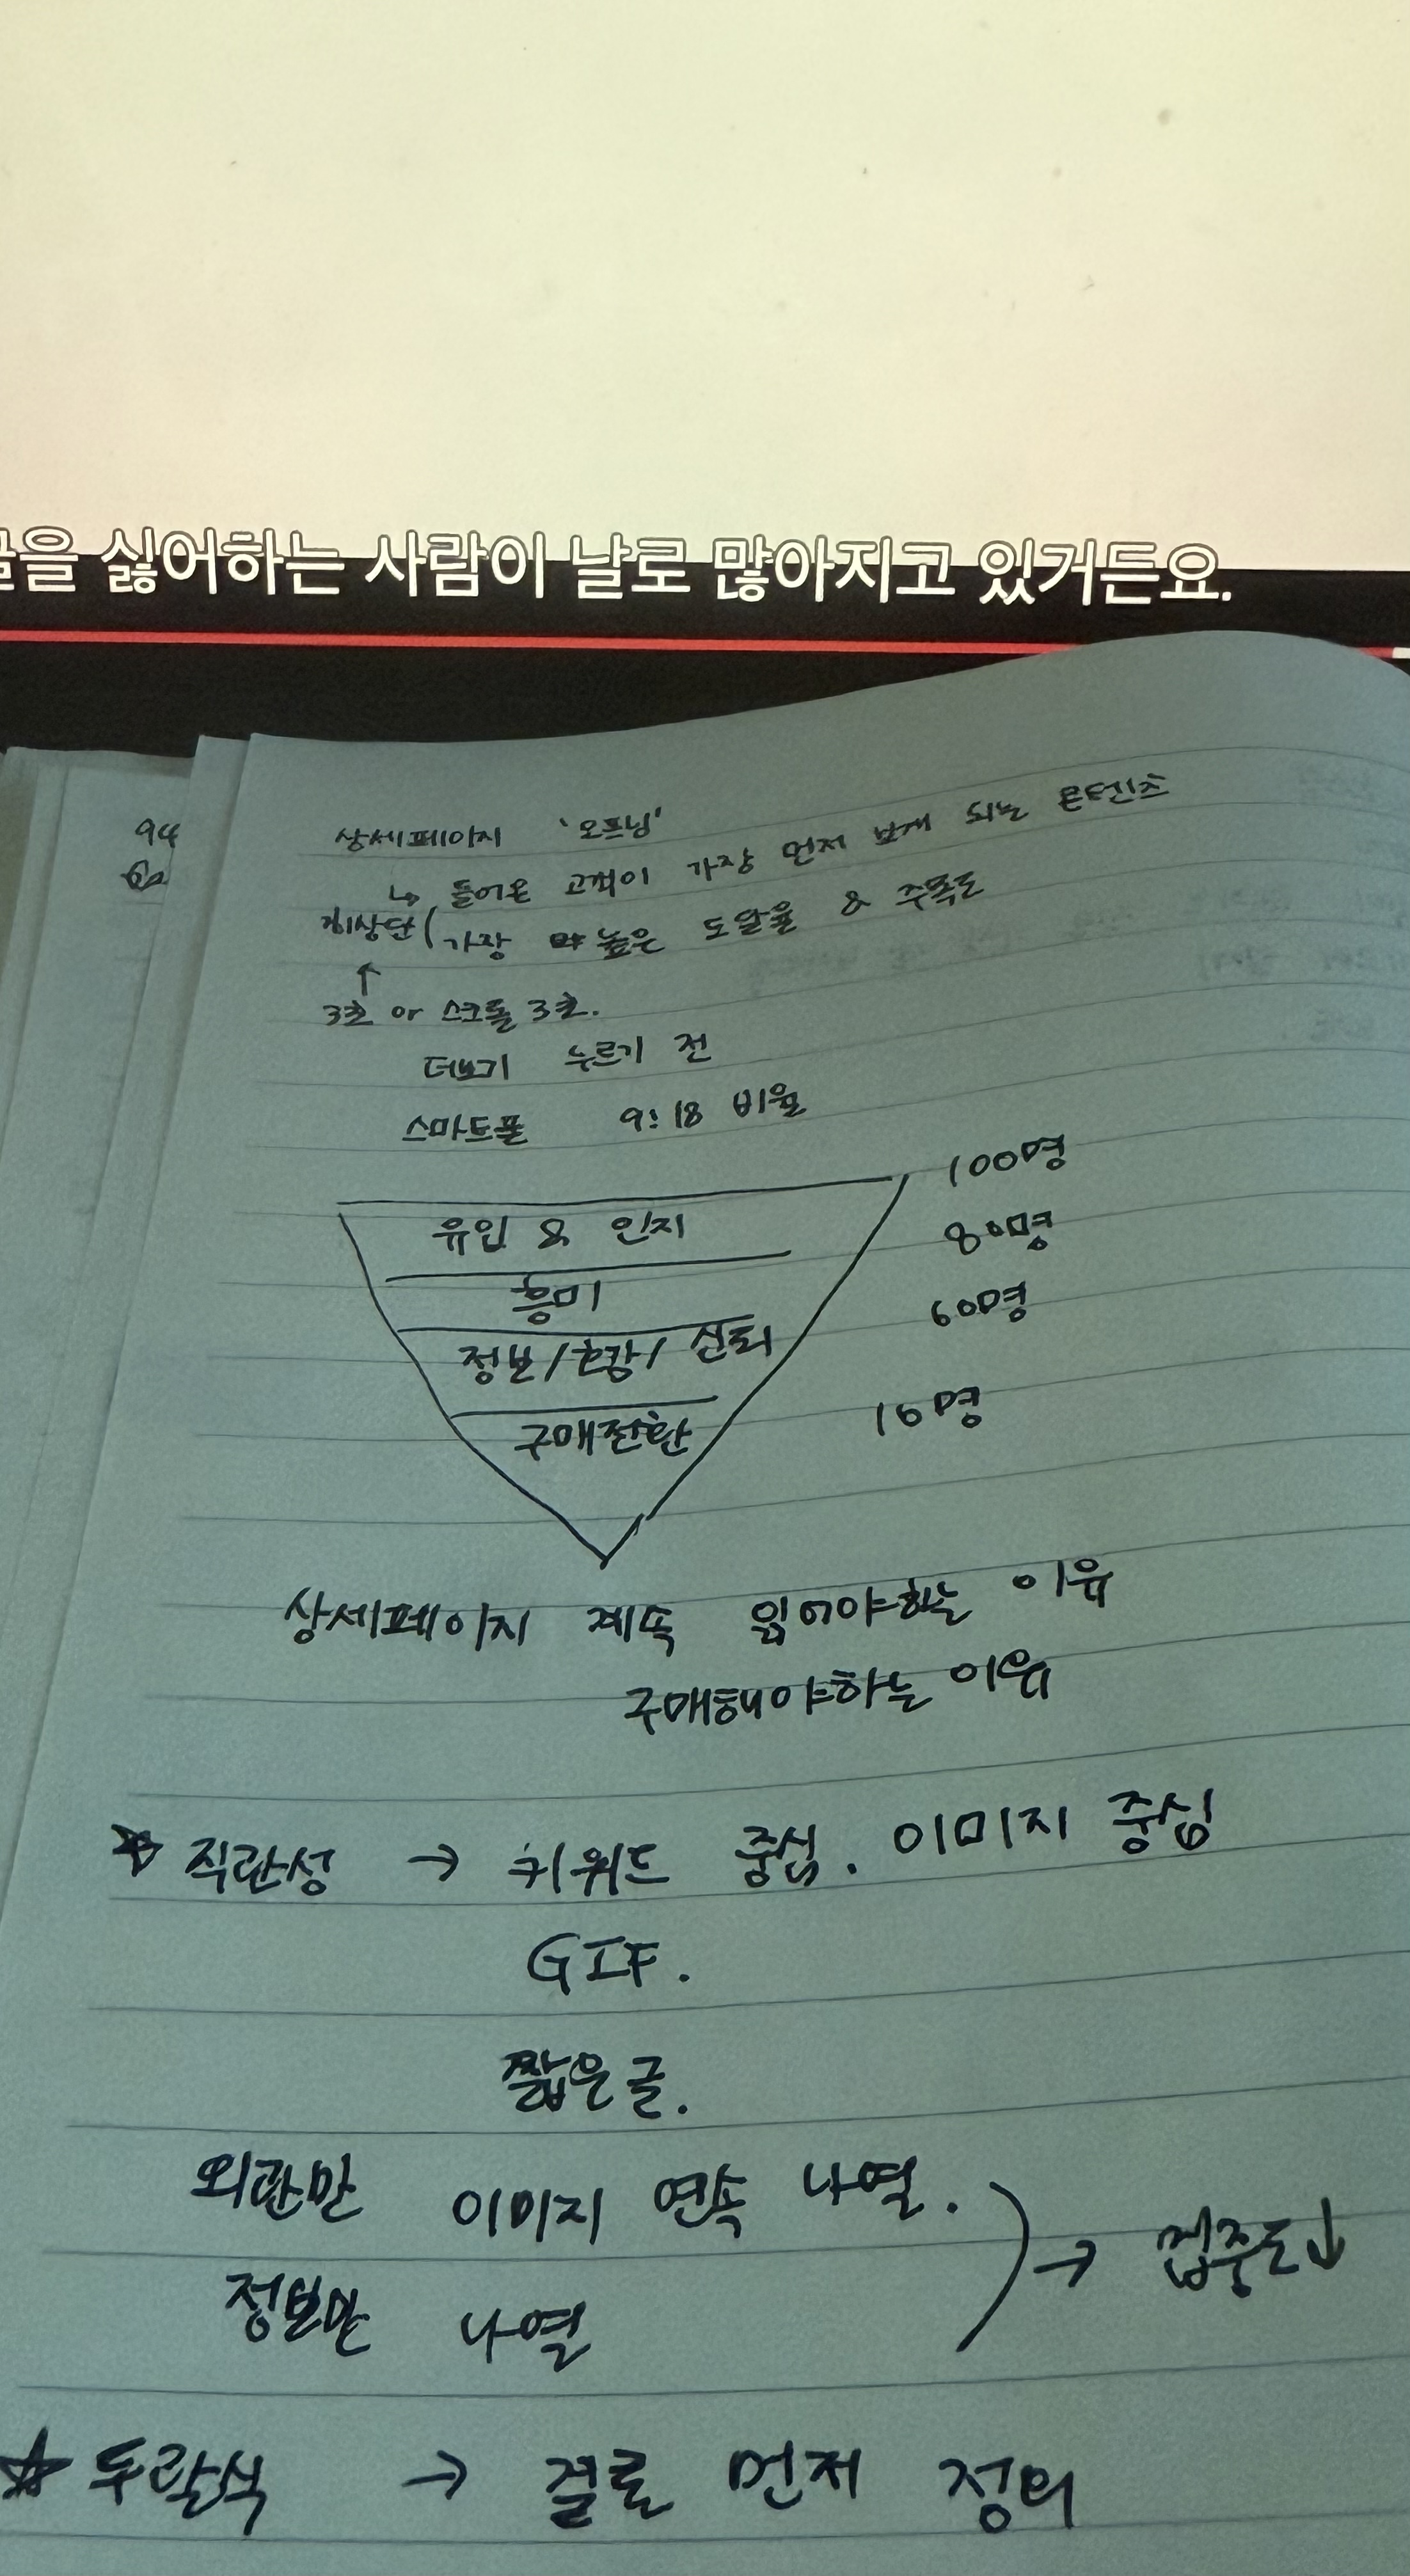 을 싫어하는 사람이 날로 많아지고 있거든요.
94
상세페이지 '오프닝'
↳ 들어온 고객이 가장 먼저 보게 되는 콘텐츠
최상단 ( 가장 높은 도달율 & 주목도
↑
3초 or 스크롤 3초.
더보기 누르기 전
스마트폰 9:18 비율
100명
유입 & 인지
80명
흥미
60명
정보/공감/신뢰
10명
구매전환
상세페이지 계속 읽어야하는 이유
구매해야하는 이유
☆ 직관성 → 키워드 중심. 이미지 중심
GIF.
짧은 글.
외관만 이미지 연속 나열.
정보만 나열
→ 집중도↓
☆ 두괄식 → 결론 먼저 정의